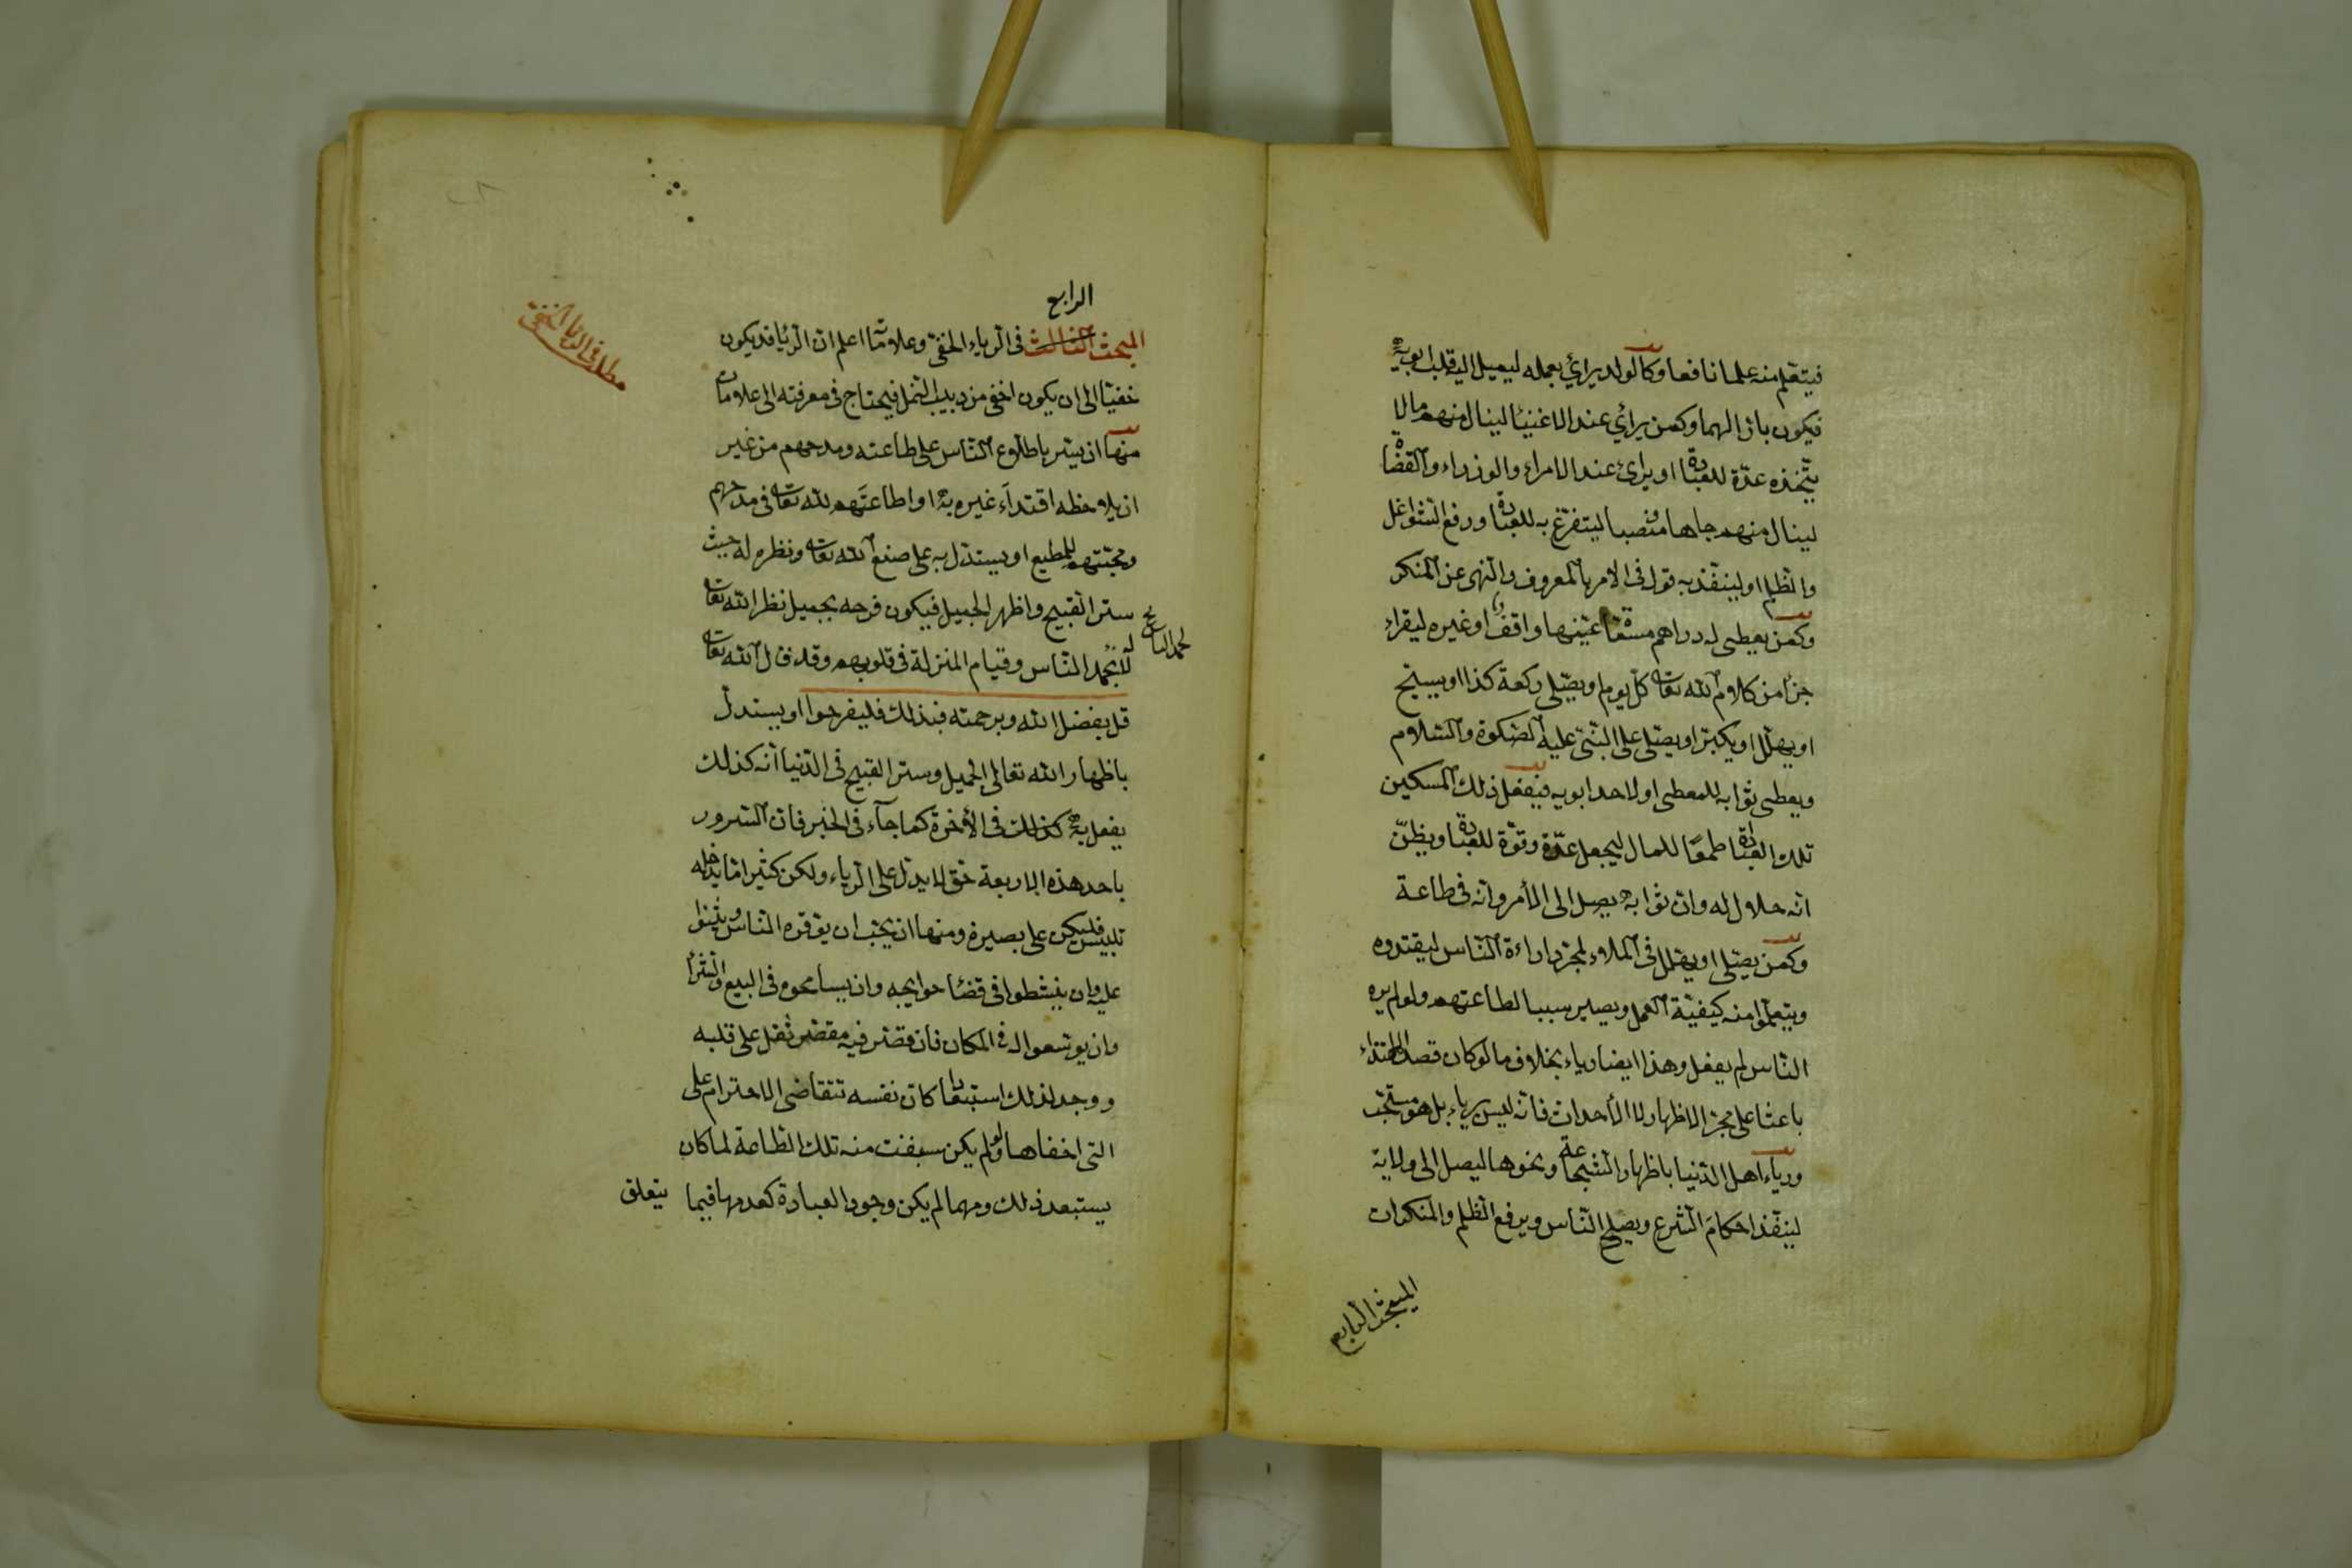 فيتعلم منه علما نافعا وكالولد يرائي بعمله ليميل اليه قلب ابويه
فيكون بارا لهما وكمن يرائي عند الاغنيا لينال منهم مالا
يتخذه عدّة للعبادة او يرائ عند الامراء والوزراء والقضاة
لينال منهم جاها ومنصبا ليتفرّغ به للعبادة ورفع الشواغل
والظلم او لينفّذ به قوله في الامر بالمعروف والنهى عن المنكر
وكمن يعطى له دراهم عيّنها واقف او غيره ليقراء
جزأ من كلام الله تعالى كلّ يوم او يصلى ركعة كذا او يسبح
او يهلّل او يكبّر او يصلّى على النبّى عليه الصلوة والسلام
ويعطى ثوابه للمعطى او لاحد ابويه فيفعل ذلك المسكين
تلك العبادة طمعًا للمال ليجعل عدّة وقوّة للعبادة ويظنّ
انّه حلال له وان ثوابه يصل الى الأمر وانه في طاعة
وكمن يصلّى او يهلل في الملاء لمجرّد اراءة الناس ليقتدوه
ويتعلّموا منه كيفيّة العمل ويصير سببا لطاعتهم ولو لم يره
الناس لم يفعل وهذا ايضا رياء بخلاف ما لو كان قصد الاقتداء
باعثا على مجرّد الاظهار لا الأحداث فانّه ليس برياء بل هو مستحبّ
ورياء اهل الدّنيا باظهار الشجاعة ونحوها ليصل الى ولاية
لينفّذ احكام الشرع ويصلح الناس ويرفع الظلم والمنكرات
المبحث الرابع
الرابع
المبحث الثالث في الرياء الخفيّ وعلاماته اعلم ان الرّيا قد يكون
مطلب في الريا الخفي
خفيّا الى ان يكون اخفى من دبيب النمل فيحتاج في معرفته الى علامات
منها ان يسّر باطلاع الناس على طاعته ومدحهم من غير
ان يلاحظه اقتداء غيره به او اطاعتهم لله تعالى في مدحهم
ومحبّتهم للمطيع او يستدل به على صنع الله تعالى ونظره له حيث
ستر القبيح واظهر الجميل فيكون فرحه بجميل نظر الله تعالى
لا بحمد الناس وقيام المنزلة في قلوبهم وقد قال الله تعالى
قل بفضل الله وبرحمته فبذلك فليفرحوا او يستدل
باظهار الله تعالى الجميل وستر القبيح في الدّنيا انّه كذلك
يفعل به كذلك في الأخرة كما جآء في الخبر فان السّرور
باحد هذه الاربعة حق لا يدل على الرّياء ولكن كثيرا ما يدخله
تلبيس فليكن على بصيرة ومنها ان يحبّ ان يوقره الناس ويثنوا
عليه وان ينشطوا في قضا حوايجه وان يسامحوه في البيع والشرا
وان يوسّعوا له في المكان فان قصّر فيه مقصّر ثقل على قلبه
ووجد لذلك استبعادا كان نفسه تتقاضى الاحترام على
التى اخفاها ولو لم يكن سبقت منه تلك الطاعة لما كان
يستبعد ذلك ومهما لم يكن وجود العبادة كعدمها فيما
يتعلق